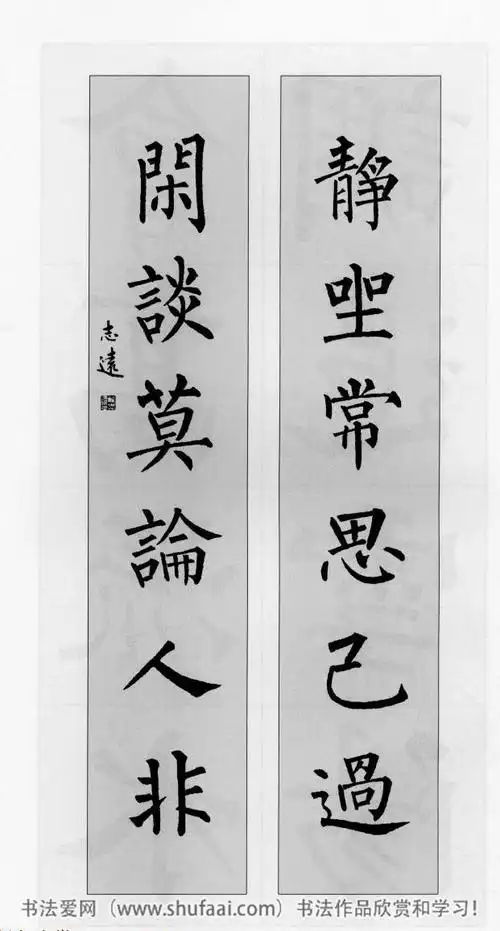 靜坐常思己過
閑談莫論人非
志遠
书法爱网（www.shufaai.com）书法作品欣赏和学习！